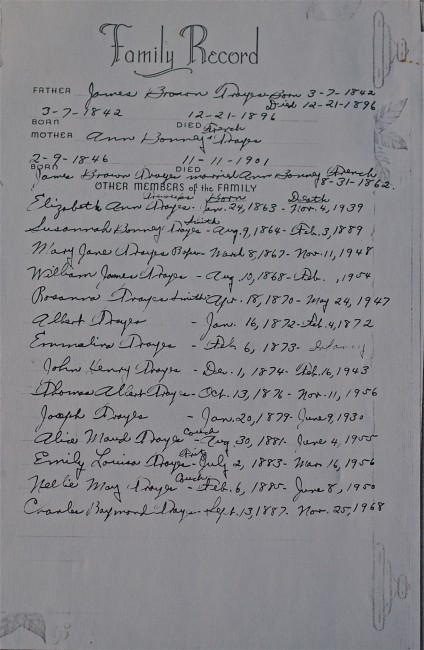 Family Record
FATHER James Brown Trayes Born 3-7-1842
Died 12-21-1896
3-7-1842 12-21-1896
BORN DIED
French
MOTHER Ann Bonney Trayes
2-9-1846 11-11-1901
BORN DIED
James Brown Trayes married Ann Bonney French
8-31-1862.
OTHER MEMBERS of the FAMILY
Born Death
Elizabeth Ann Trayes - Jan. 24, 1863 - Nov. 4, 1939
Smith
Susannah Bonney Trayes - Aug. 9, 1864 - Feb. 3, 1889
Mary Jane Trayes - March 8, 1867 - Nov. 11, 1948
William James Trayes - Aug 10, 1868 - Feb. , 1954
Rosanna Trayes Smith Apr. 18, 1870 - May 24, 1947
Albert Trayes - Jan. 16, 1872 - Feb. 4, 1872
Emmaline Trayes - Feb 6, 1873 - Infancy
John Henry Trayes - Dec. 1, 1874 - Feb. 16, 1943
Thomas Albert Trayes - Oct. 13, 1876 - Nov. 11, 1956
Joseph Trayes - Jan. 20, 1879 - June 9, 1930
Couch
Alice Maud Trayes - Aug 30, 1881 - June 4, 1955
Emily Louisa Trayes - July 2, 1883 - Mar 16, 1956
Couch
Nellie May Trayes - Feb. 6, 1885 - June 8, 1950
Charles Raymond Trayes - Sept. 13, 1887 - Nov. 25, 1968